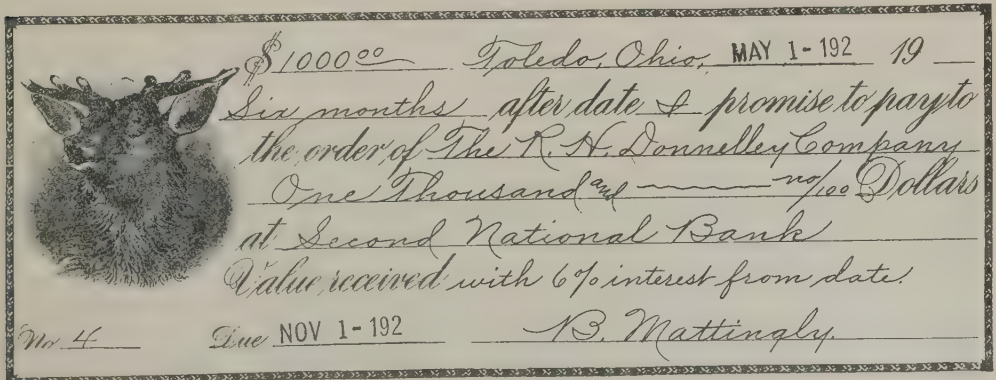 $1000 00 Toledo, Ohio, MAY 1-192 19
Six months after date I promise to pay to
the order of The R. H. Donnelley Company
One Thousand and no/100 Dollars
at Second National Bank
Value received with 6% interest from date.
No 4 Due NOV 1-192 B. Mattingly.